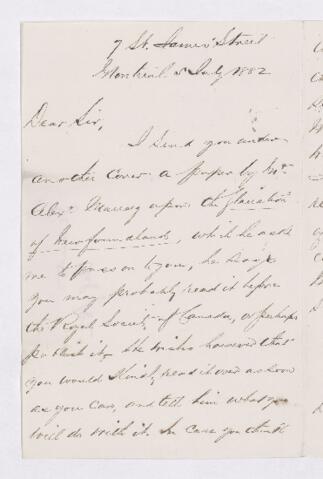 7 St. James' Street
Montreal 5 July 1882
Dear Sir,
I send you under
another Cover a paper by Mr.
Alexr. Murray upon the Glaciation
of Newfoundland, which he asks
me to pass on to you, he says
you may probably read it before
the Royal Society of Canada, or perhaps
publish it. He wishes however that
you would kindly read it over as soon
as you can, and tell him what you
will do with it. In case you think